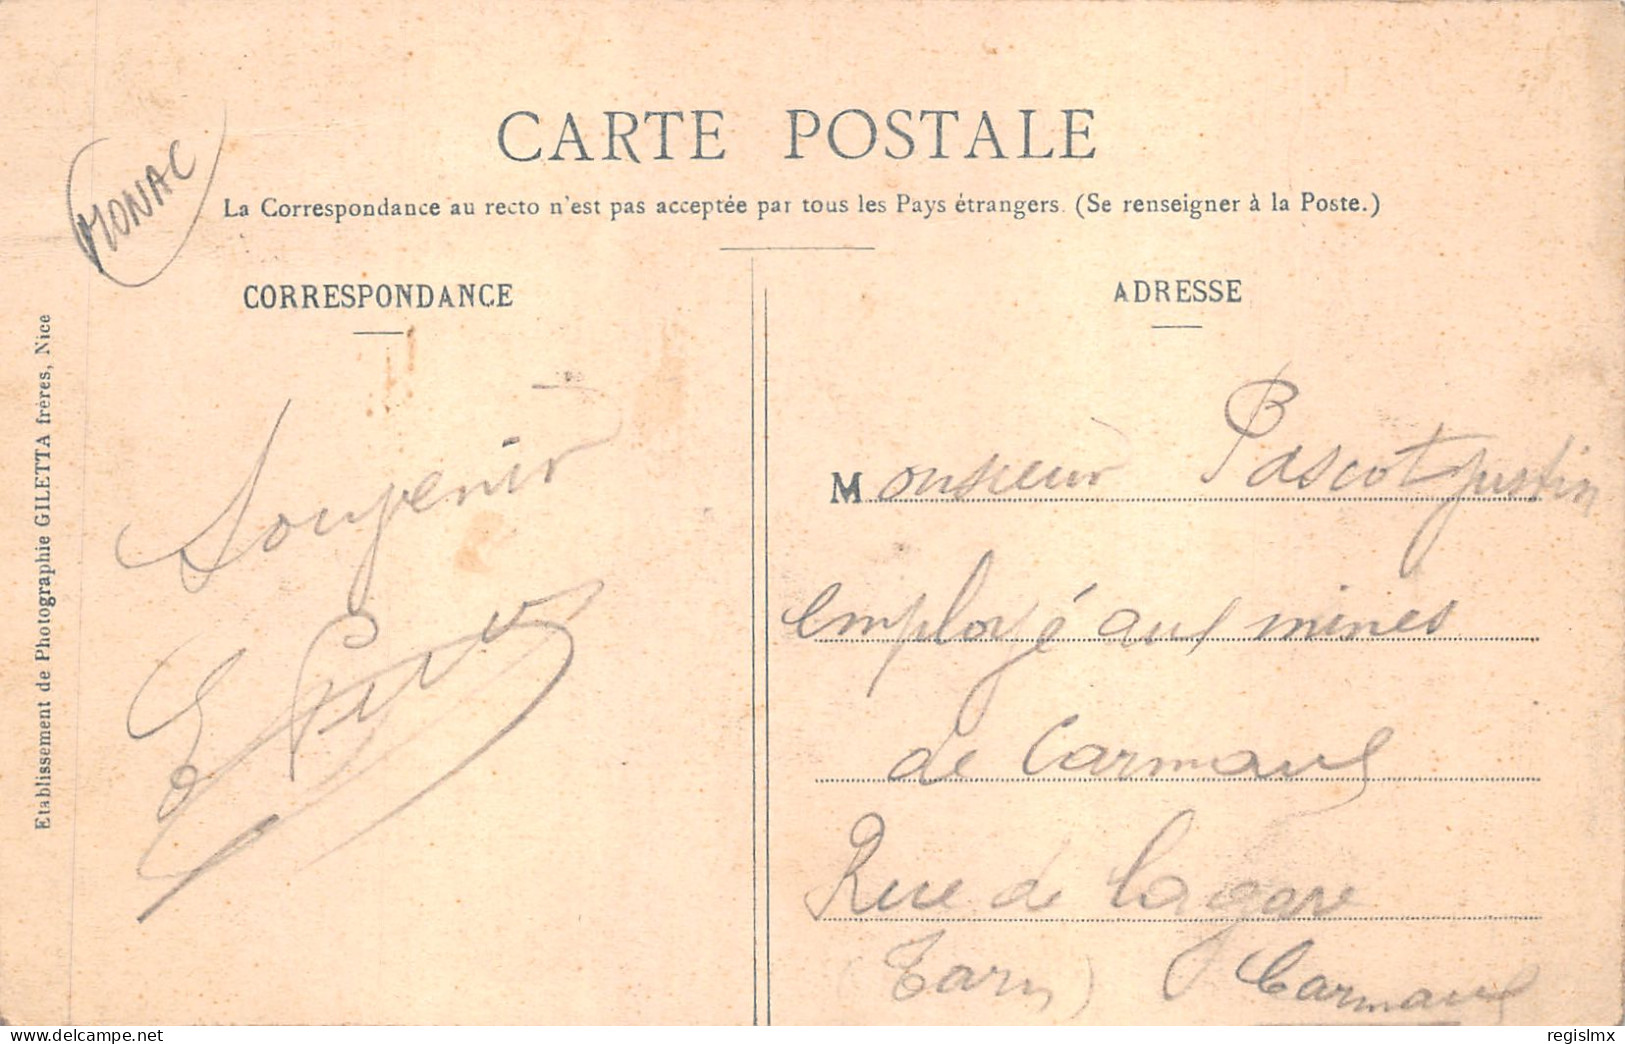 CARTE POSTALE
MONAC
La Correspondance au recto n'est pas acceptée par tous les Pays étrangers. (Se renseigner à la Poste.)
CORRESPONDANCE
Souvenir
ADRESSE
Monsieur Pascot Justin
employé aux mines
de Carmaux
Rue de la gare
(Tarn) Carmaux
Etablissement de Photographie GILETTA frères, Nice
regislmx